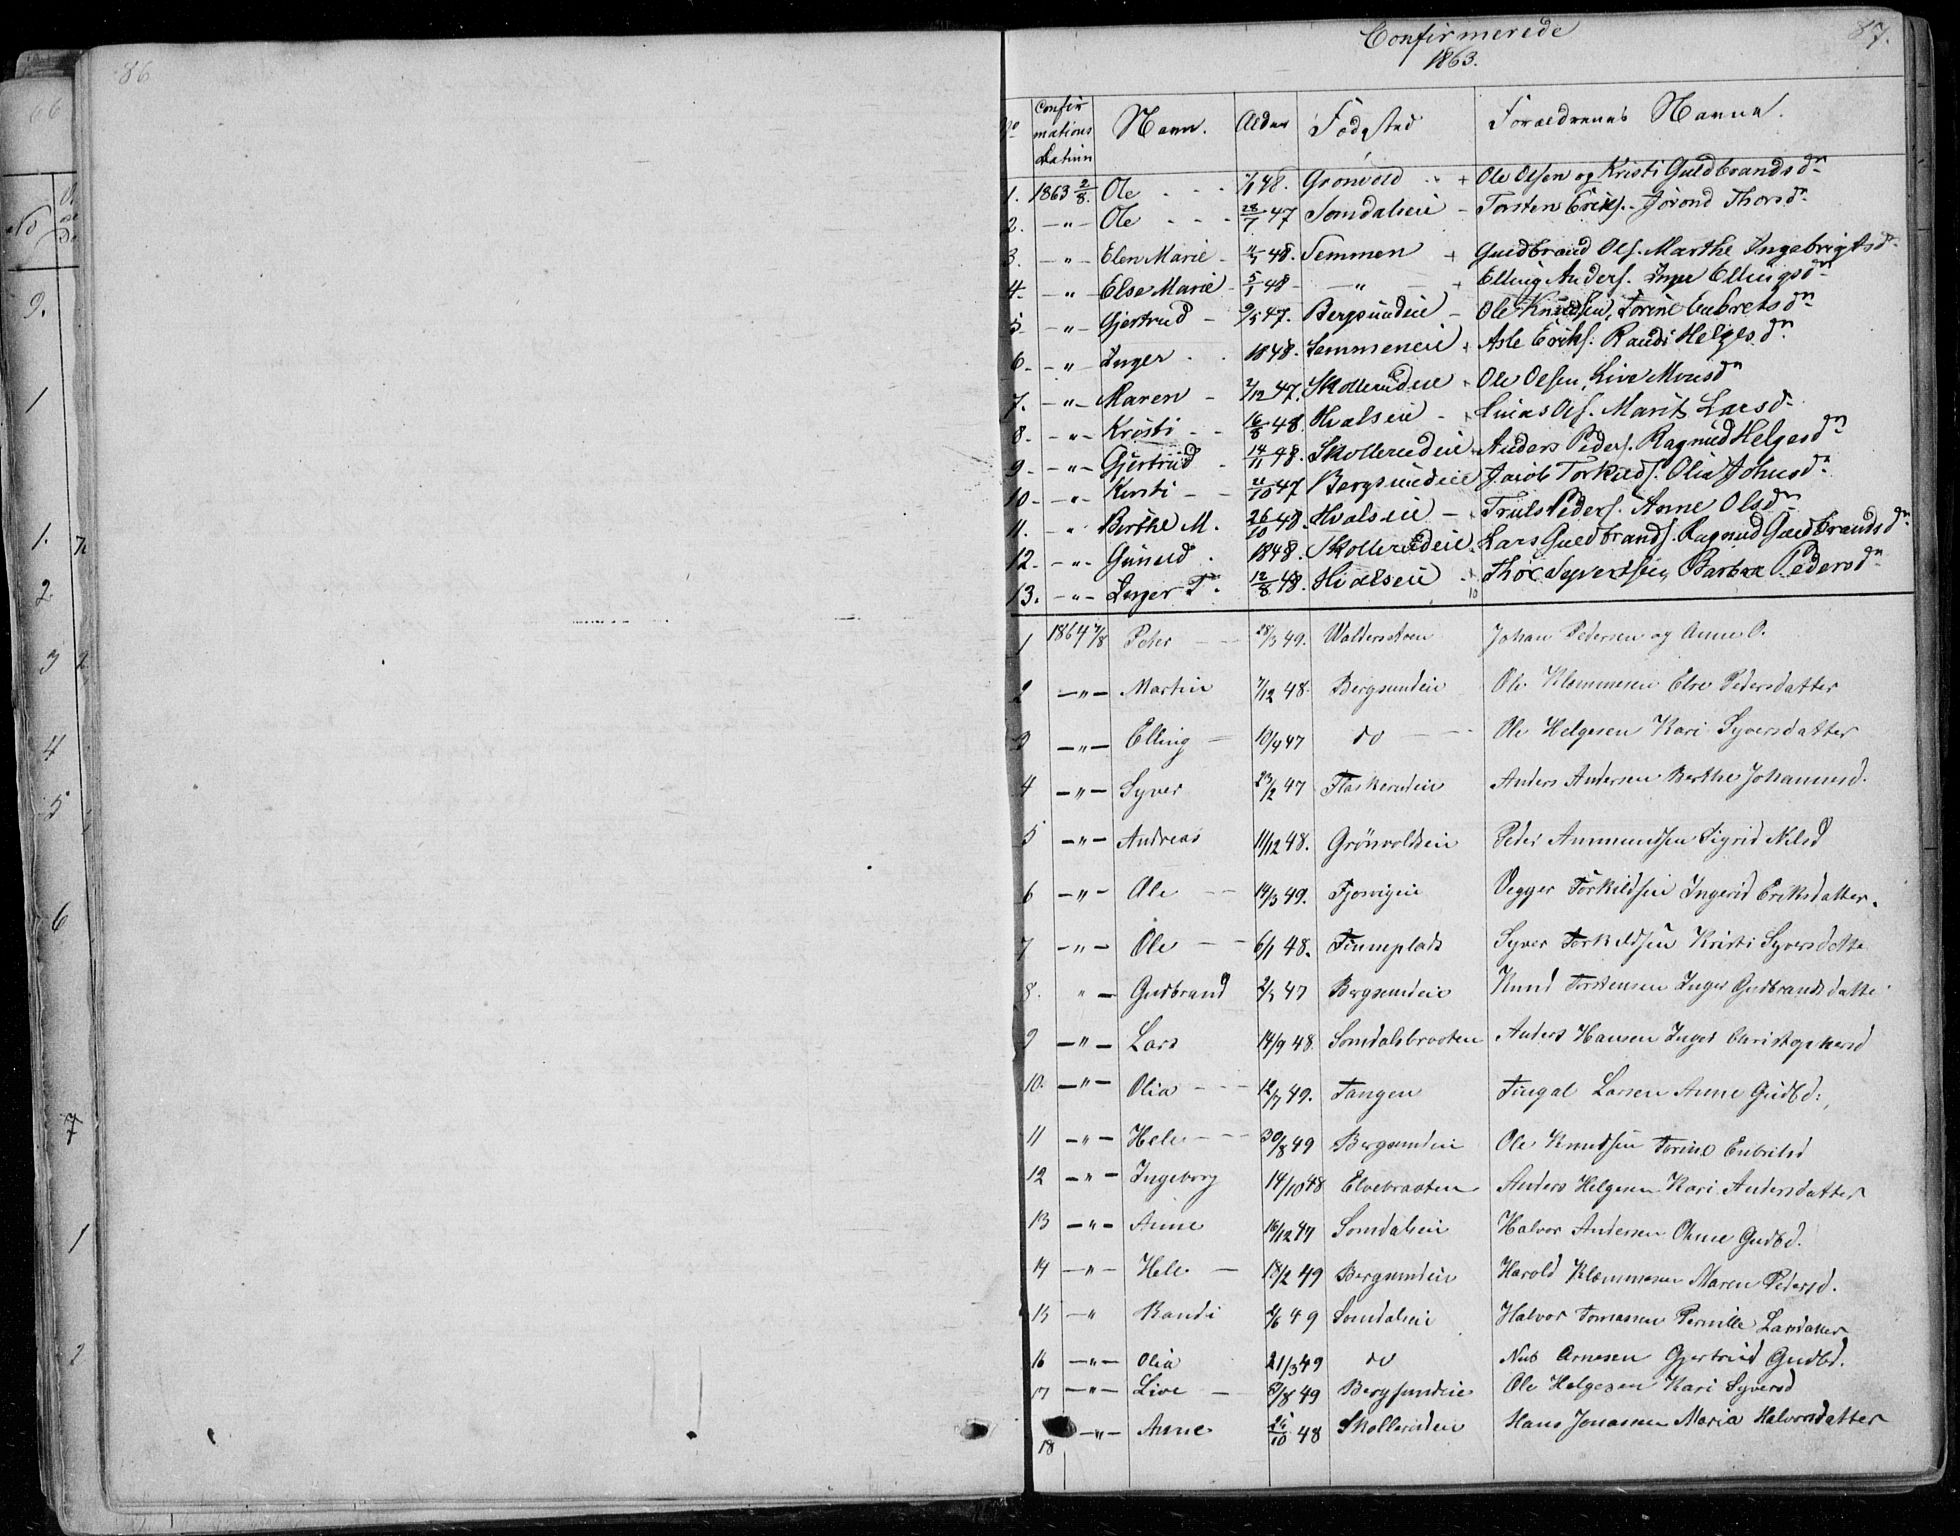 86
66
No
9.
1
1. 7.
2
3 2
4
5
6
7
1
2
87.
Confirmerede
1863.
No Confirmations Datum Navn. Alder Fødested Forældrenes Navne.
1. 1863 2/8. Ole - - - 48. Grønvold + Ole Olsen og Kristi Guldbrandsdn
2. -"- Ole - - - 28/7 47 Somdalseie - Torsten Eriks. Jørond Thorsdn
3. -"- Elen Marie - 48. Semmen + Guldbrand Ols. Marthe Ingebrigtsdn
4. -"- Else Marie - 5/1 48 - " - + Elling Anders. Inge Ellingsdn
5. -"- Gjertrud - 9/5 47. Bergsundeie - Ole Knudsen, Torine Enbretsdn
6. -"- Inger . . 1848. Semmeneie + Asle Eriks. Randi Helgesdn
7. -"- Maren - 2/12 47. Skollerudeie + Ole Olsen, Live Monsdn
8. -"- Kristi - - 16/8 48. Hvalseie - + Ols. Marit Larsd.
9. -"- Gjertrud . 14/11 48. Skollerudeie Anders Peders. Ragnild Helgesdn
10. -"- Kirsti - - 21/10 47 Bergsundeie Jacob Torkilds. Olia Johnsdn
11. " Berthe M. 26/10 48. Hvalseie - + Truls Peders. Anne Olsdn
12. -"- Gunild . 1848. Skollerudeie Lars Guldbrands. Ragnild Guldbrandsdn
13. -"- Inger T. 12/8 48. Hvalseie + Thor Syvertsen Barbra Pedersdn
10
1 1864 7/8 Peter - - 28/3 49. Waldersteen Johan Pedersen og Anne O.
2 -"- Martin 7/12 48. Bergsundeie Ole Klemmesen Else Pedersdatter
3 -"- Elling - 10/4 47 do - - - Ole Helgesen Kari Syversdatter
4 -"- Syver 23/2 47 Flaskerudeie Anders Andersen Berthe Johannesd.
5 -"- Andreas 11/12 48. Grønvoldseie Peder Ammundsen Sigrid Nilsd
6 -"- Ole - - 14/3 49. Tjosvigeie Vegger Torkildsen Ingerid Eriksdatter.
7 -"- Ole - - 6/1 48. Finneplads Syver Torkildsen Kristi Syversdatte
8. " - Gudbrand 2/3 47 Bergsundeie Knud Torstensen Inger Gudbrandsdatte
9 -"- Lars 14/9 48. Somdalsbraaten Anders Hansen Inger Christophersd
10. -"- Olia - - - 12/7 49. Tangen Fingal Larsen Anne Gudbd:
11 -"- Hele - - - 30/8 49 Bergsundeie Ole Knudsen Torine Enbritsd
12 -"- Ingeborg 14/10 48 Elvebraaten Anders Helgesen Kari Andersdatter
13 -"- Anne 16/12 47 Somdalseie Halvor Andersen Anne Gudbd.
14 -"- Hele - 18/2 49 Bergsundeie Harald Klemmesen Maren Pedersd.
15 -" Randi 2/6 49 Somdalseie Halvor Tomassen Pernille Larsdatter
16 -"- Olia 21/3 49 do Nub Arnesen Gjertrud Gudbd.
17 -"- Live - 3/8 49 Bergsundeie Ole Helgesen Kari Syversd
18 -"- Anne 24/10 48 Skollerudeie Hans Jonassen Maria Halvorsdatter